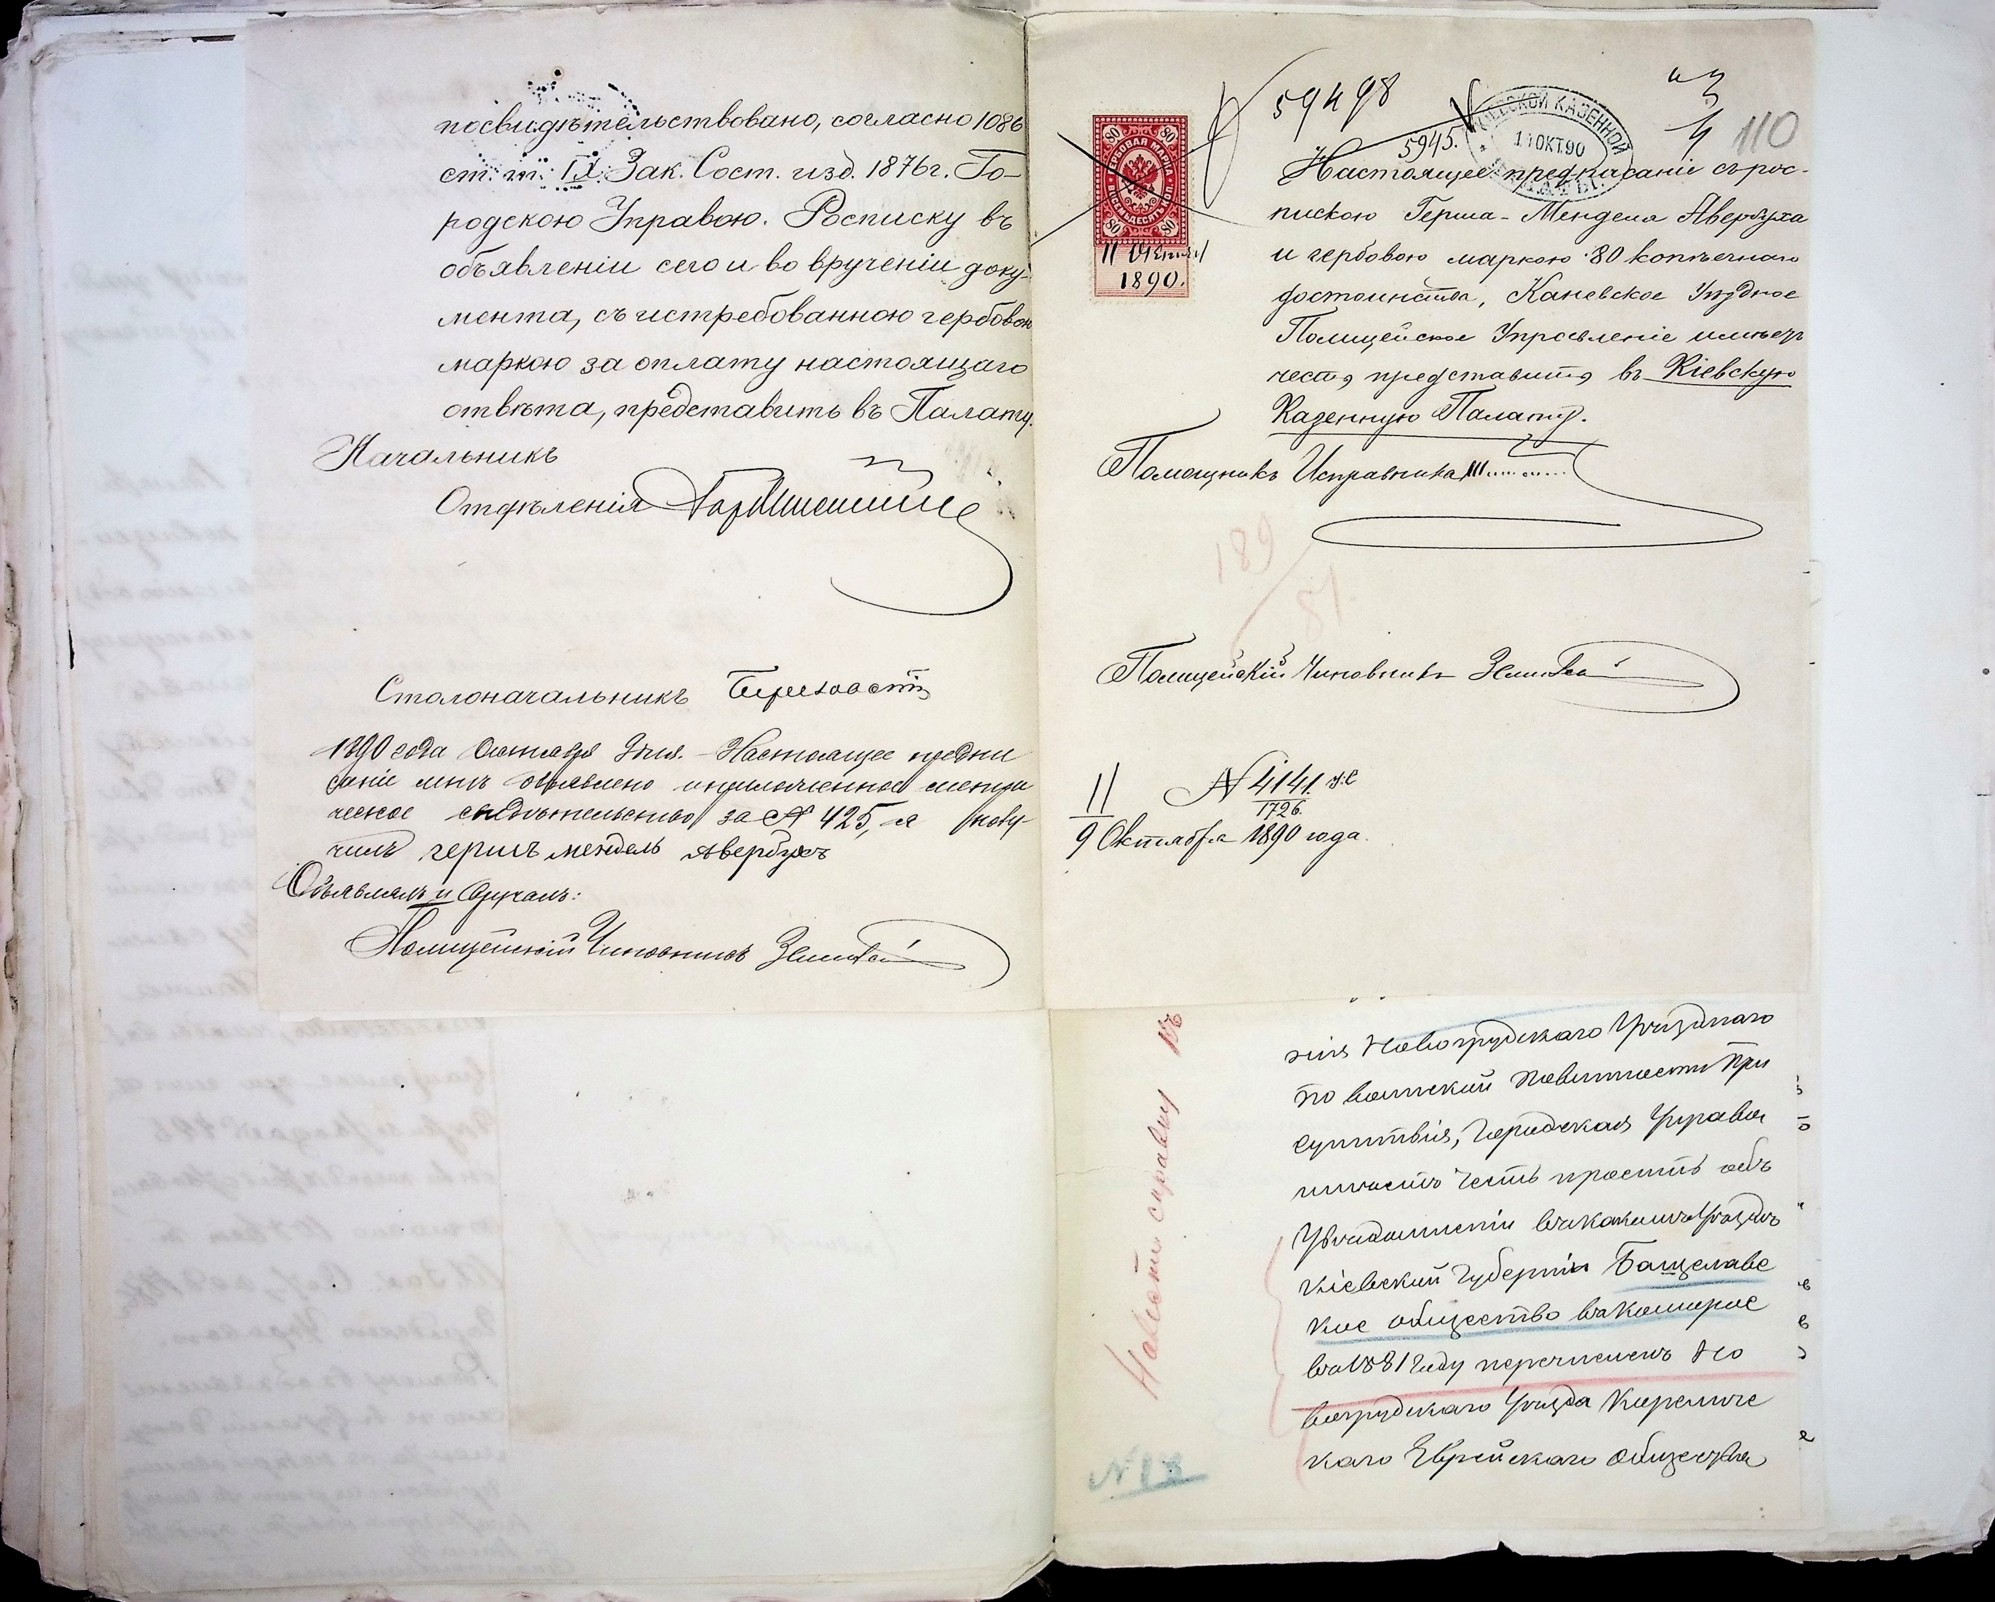 посвидѣтельствовано, согласно 1086
ст. т. IX Зак. Сост. изд. 1876 г. Го-
родскою Управою. Росписку въ
объявленіи сего и во врученіи доку-
мента, съ истребованною гербовою
маркою за оплату настоящаго
отвѣта, представить въ Палату.
Начальникъ
Отдѣленія
Столоначальникъ
1890 года Октября 9 дня. Настоящее предпи
саніе мнѣ объявлено и приложенное метри
ческое свидѣтельство за № 425, я полу-
чилъ гершъ мендель Авербухъ
Объявлялъ и вручалъ:
Полицейскій Чиновникъ
59498
5945.
КІЕВСКОЙ КАЗЕННОЙ
ПАЛАТЫ.
11 ОКТ. 90
110
80 80
ГЕРБОВАЯ МАРКА
ВОСЕМЬДЕСЯТЪ КОП.
80 80
11
1890.
Настоящее предписаніе съ рос-
пискою Герша-Менделя Авербуха
и гербовою маркою 80 копѣечнаго
достоинства, Каневское Уѣздное
Полицейское Управленіе имѣетъ
честь представить въ Кіевскую
Казенную Палату.
Помощникъ Исправника
189
81.
Полицейскій Чиновникъ
№ 4141.
1726.
11
9 Октября 1890 года.
Навести справку
№ 18
нія Новогрудскаго Уѣзднаго
по воинской повинности При
сутствія, Городская Управа
имѣетъ честь просить объ
увѣдомленіи въ какомъ Уѣздѣ
Кіевской Губерніи Башелавс
кое общество въ которое
въ 1881 году перечисленъ Но
вогрудскаго уѣзда Кореличс
каго Еврейскаго общества